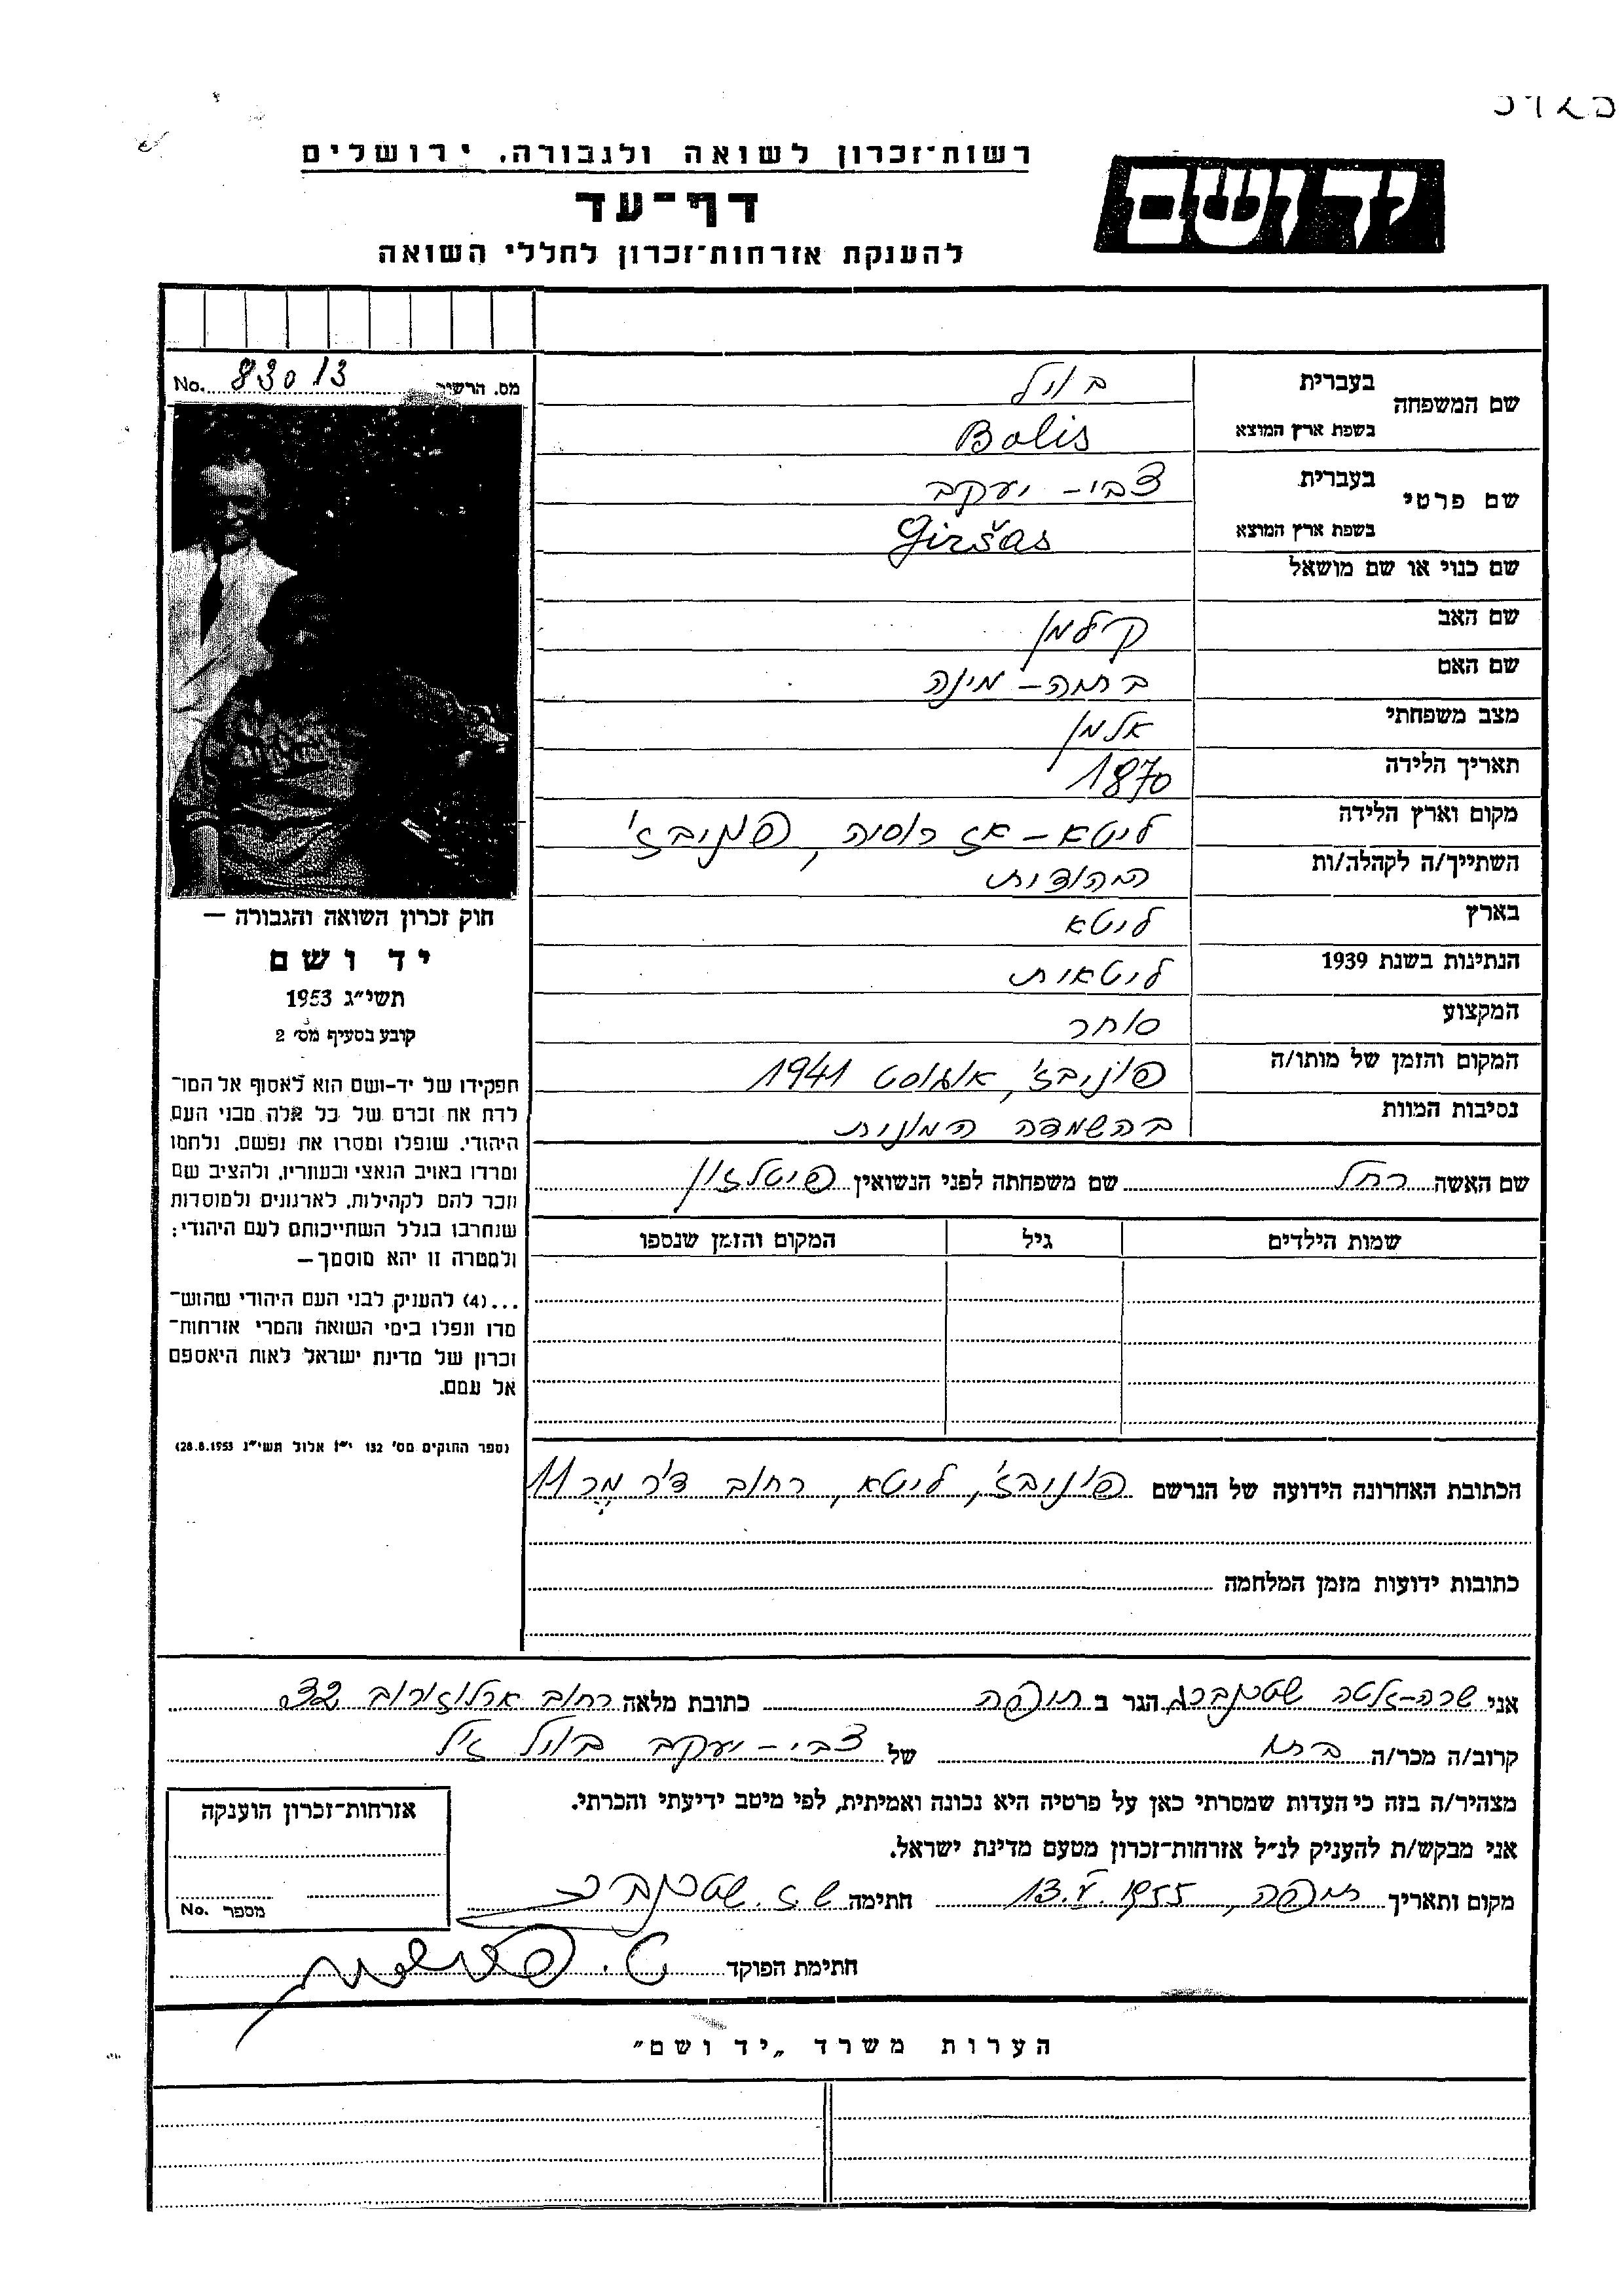 רשות־זכרון לשואה ולגבורה, ירושלים
דף־עד
להענקת אזרחות־זכרון לחללי השואה
יד ושם
מס. הרשיר No. 83013
שם המשפחה בעברית בויל
בשפת ארץ המוצא Bolis
שם פרטי בעברית צבי - יעקב
בשפת ארץ המוצא Giršas
שם כנוי או שם מושאל
שם האב קילמן
שם האם ברתה - מינה
מצב משפחתי אלמן
תאריך הלידה 1870
מקום וארץ הלידה ליטא - אז רוסיה, פונוביז'
השתייך/ה לקהלה/ות היהודית
בארץ ליטא
הנתינות בשנת 1939 ליטאית
המקצוע סוחר
המקום והזמן של מותו/ה פוניבז', אוגוסט 1941
נסיבות המוות בהשמדה המונית
שם האשה רחל שם משפחתה לפני הנשואין פיטלזון
שמות הילדים גיל המקום והזמן שנספו
חוק זכרון השואה והגבורה —
יד ושם
תשי״ג 1953
קובע בסעיף מס׳ 2
תפקידו של יד-ושם הוא לאסוף אל המו־
לדת את זכרם של כל אלה מבני העם
היהודי, שנפלו ומסרו את נפשם, נלחמו
ומרדו באויב הנאצי ובעוזריו, ולהציב שם
וזכר להם לקהילות, לארגונים ולמוסדות
שנחרבו בגלל השתייכותם לעם היהודי;
ולמטרה זו יהא מוסמך —
...(4) להעניק לבני העם היהודי שהוש־
מדו ונפלו בימי השואה והמרי אזרחות־
זכרון של מדינת ישראל לאות היאספם
אל עמם.
(ספר החוקים מס׳ 132 י״ז אלול תשי״ג 28.8.1953)
הכתובת האחרונה הידועה של הנרשם פוניבז', ליטא, רחוב ד״ר מר 11
כתובות ידועות מזמן המלחמה
אני שרה-זלטה שטנברג הגר ב חיפה כתובת מלאה רחוב ארלוזורוב 32
קרוב/ה מכר/ה בתו של צבי - יעקב בויל ז״ל
מצהיר/ה בזה כי העדות שמסרתי כאן על פרטיה היא נכונה ואמיתית, לפי מיטב ידיעתי והכרתי.
אני מבקש/ת להעניק לנ״ל אזרחות־זכרון מטעם מדינת ישראל.
מקום ותאריך חיפה, 13.V.1955 חתימה ש.ז. שטנברג
חתימת הפוקד
אזרחות־זכרון הוענקה
מספר No.
הערות משרד „יד ושם״